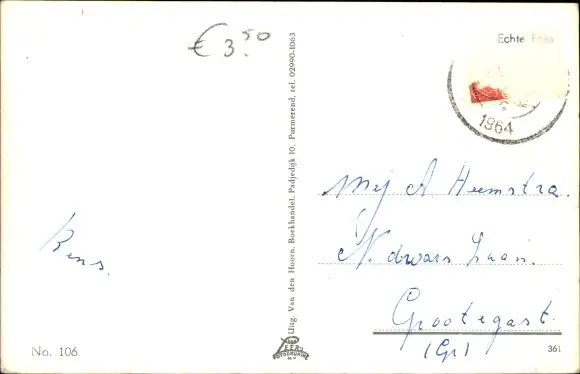 € 3.50
Echte Foto
1964
Mej A Heemstra.
N. dwars Laan.
Grootegast.
(Gr)
Bens.
No. 106.
361
Uitg. Van den Hoorn, Boekhandel, Padjedijk 10, Purmerend, tel. 02990-1063